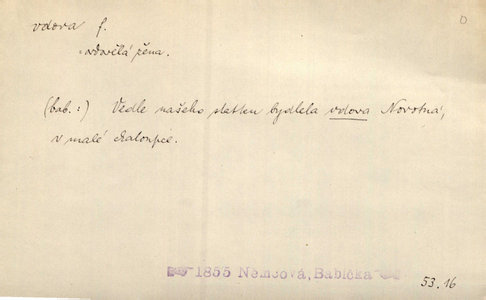 vdova f.
ovdovělá žena.
(bab.:) Vedle našeho statku bydlela vdova Novotná,
v malé chaloupce.
1855 Němcová, Babička
53.16